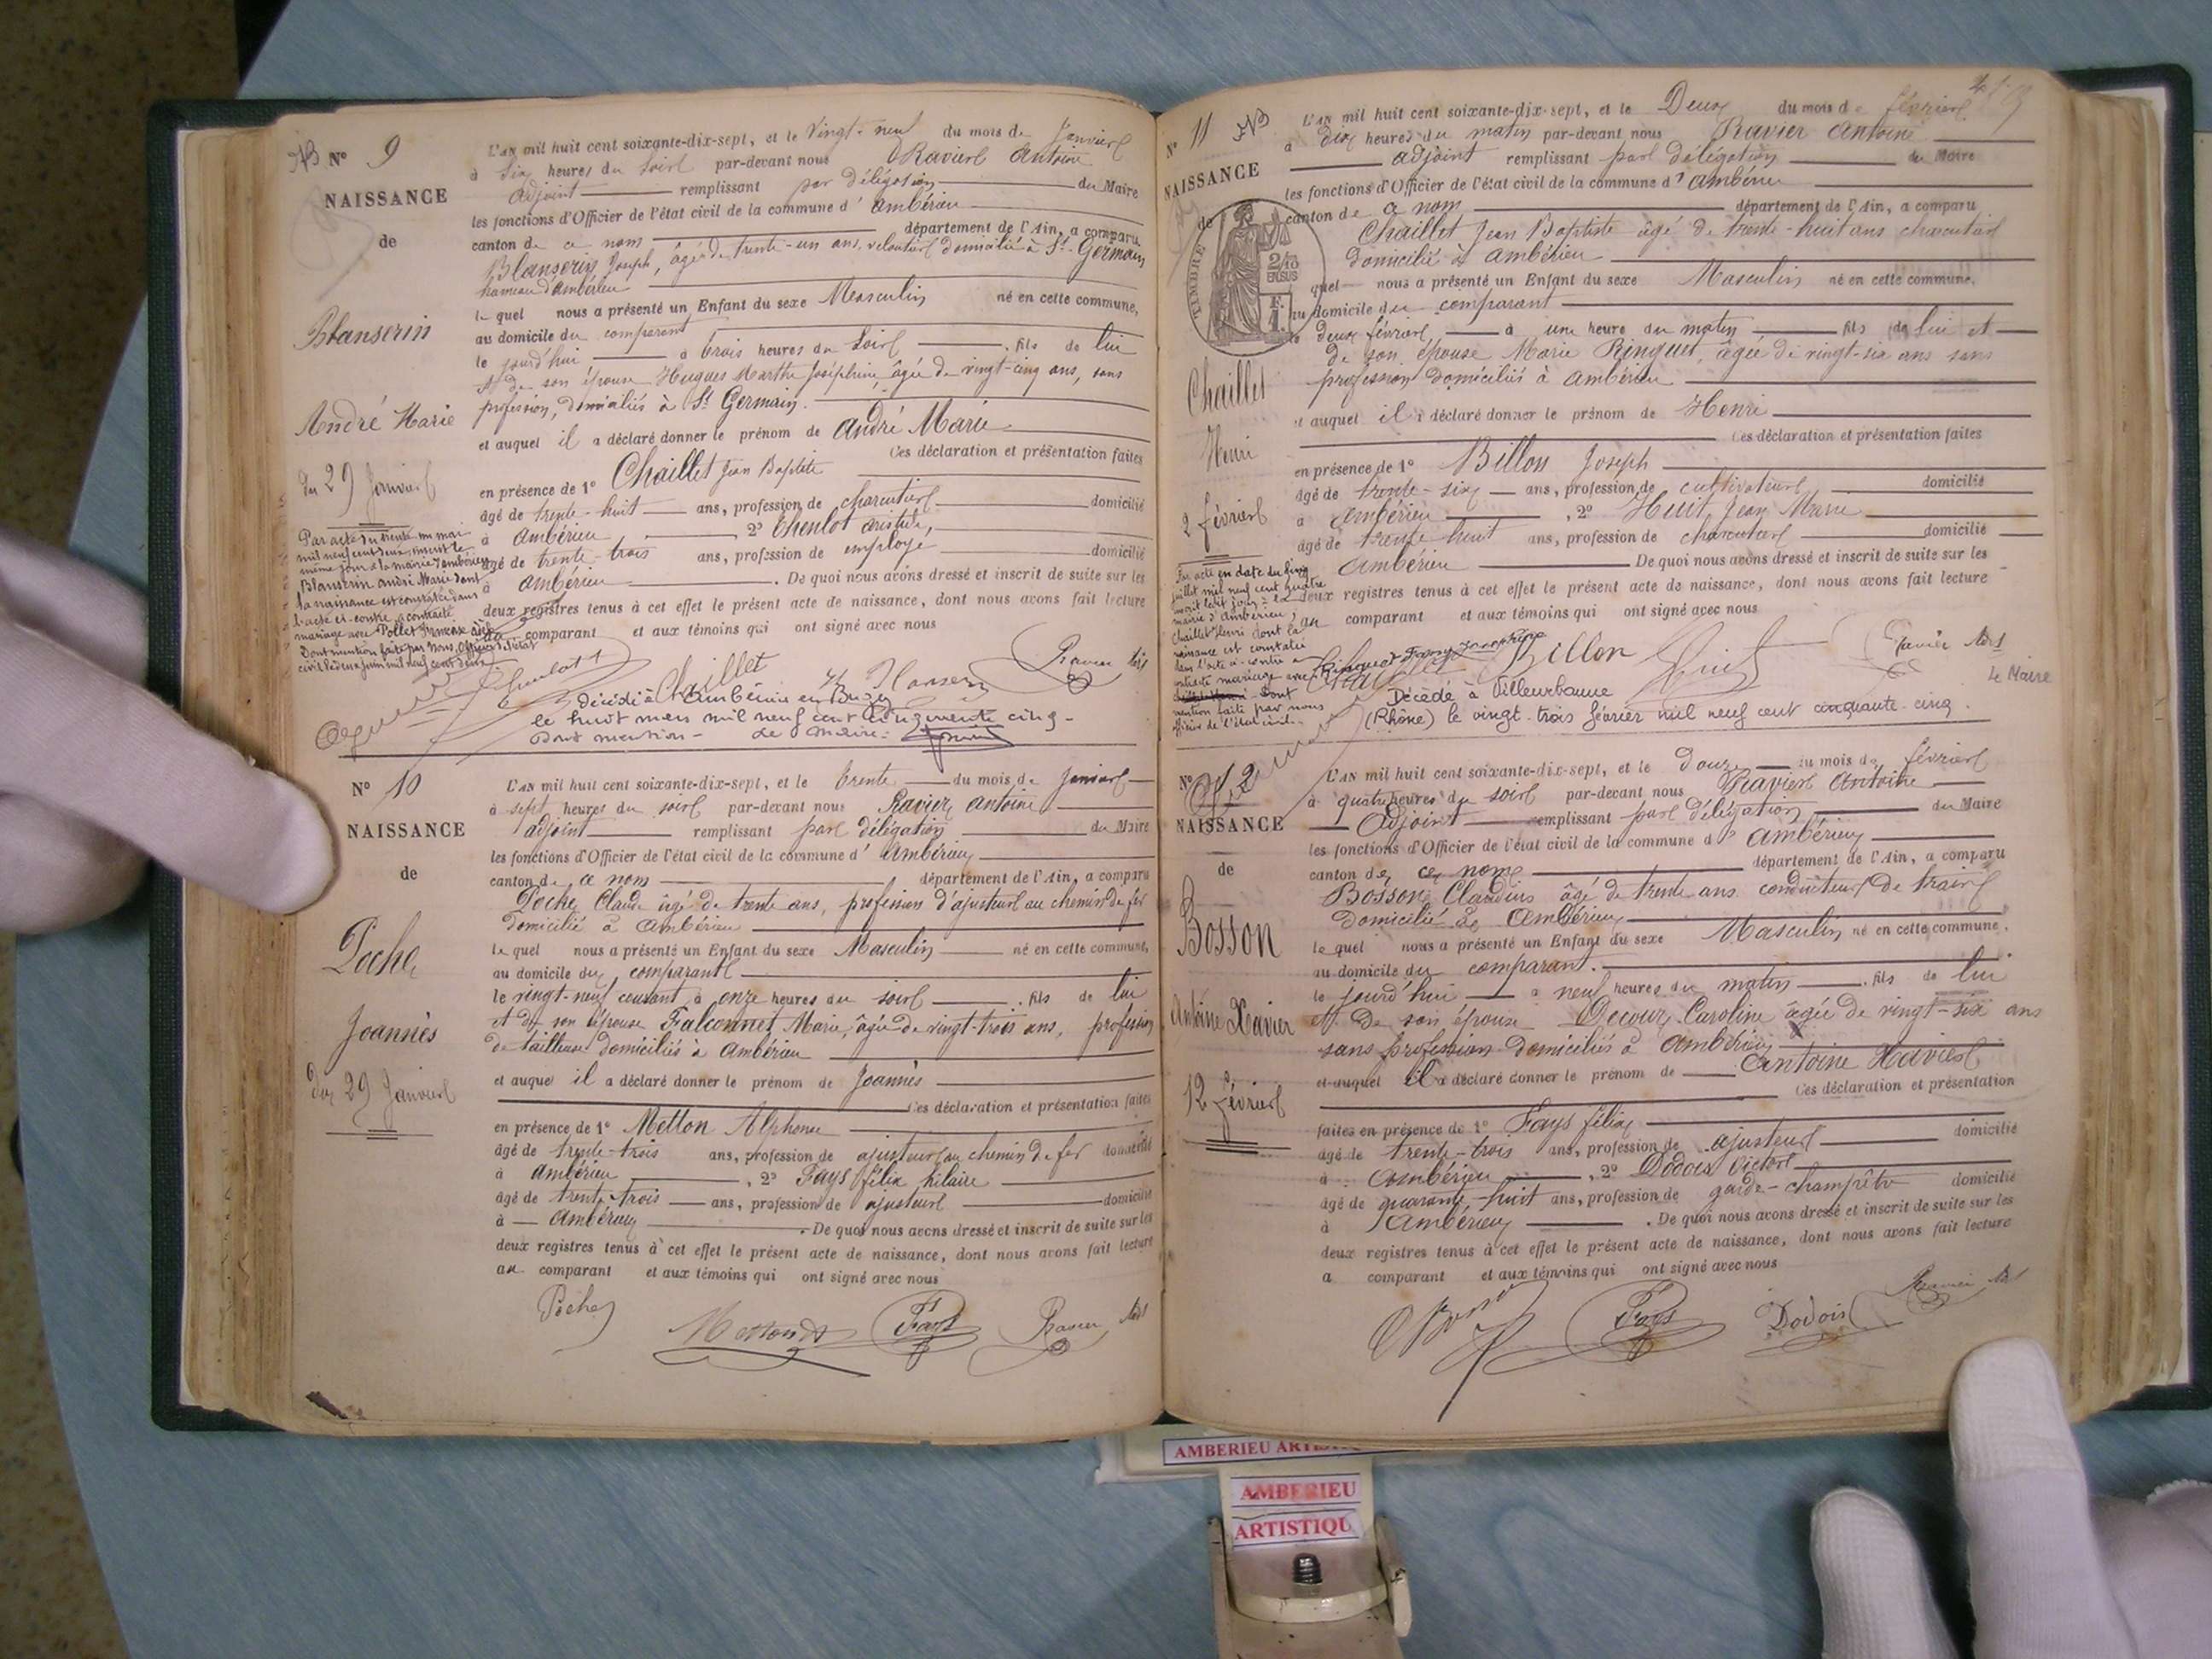 N° 9
NAISSANCE
de
Blanserin
André Marie
du 29 Janvier
L'AN mil huit cent soixante-dix-sept, et le Vingt-neuf du mois de Janvier
à Six heures du Soir par-devant nous Ravier Antoine
adjoint remplissant par délégation du Maire
les fonctions d'Officier de l'état civil de la commune d'Ambérieu
canton de ce nom département de l'Ain, a comparu
Blanserin Joseph, âgé de trente-un ans, domicilié à St. Germain
hameau d'Ambérieu
lequel nous a présenté un Enfant du sexe Masculin né en cette commune,
au domicile du comparant
le jourd'hui à trois heures du Soir fils de lui
et de son épouse Hugues Marthe Joséphine, âgée de vingt-cinq ans, sans
profession, domiciliés à St Germain.
et auquel il a déclaré donner le prénom de André Marie
Ces déclaration et présentation faites
en présence de 1° Chaillet Jean Baptiste
âgé de trente-huit ans, profession de charcutier domicilié
à Ambérieu, 2° aristide,
âgé de trente-trois ans, profession de employé domicilié
à Ambérieu. De quoi nous avons dressé et inscrit de suite sur les
deux registres tenus à cet effet le présent acte de naissance, dont nous avons fait lecture
au comparant et aux témoins qui ont signé avec nous
Par acte du trente un mai
mil neuf cent deux, inscrit le
même jour à la mairie d'Ambérieu
Blanserin André Marie dont
la naissance est constatée dans
l'acte ci-contre a contracté
mariage avec Pollet
Dont mention faite par Nous, Officier de l'état
civil le deux Juin mil neuf cent deux
Chaillet Ravier
décédé à Ambérieu en Bugey
le huit mars mil neuf cent cinquante cinq -
Dont mention - Le Maire:
N° 10
NAISSANCE
de
Poche
Joannès
du 29 Janvier
L'AN mil huit cent soixante-dix-sept, et le trente du mois de Janvier
à sept heures du soir par-devant nous Ravier Antoine
adjoint remplissant par délégation du Maire
les fonctions d'Officier de l'état civil de la commune d'Ambérieu
canton de ce nom département de l'Ain, a comparu
Poche Claude âgé de trente ans, profession d'ajusteur au chemin de fer
domicilié à Ambérieu
lequel nous a présenté un Enfant du sexe Masculin né en cette commune,
au domicile du comparant
le vingt-neuf courant à onze heures du soir fils de lui
et de son épouse Falconnet Marie, âgée de vingt-trois ans, profession
de tailleuse domiciliés à Ambérieu
et auquel il a déclaré donner le prénom de Joannès
Ces déclaration et présentation faites
en présence de 1° Metton Alphonse
âgé de trente-trois ans, profession de ajusteur au chemin de fer domicilié
à Ambérieu, 2° Fays félix hilaire
âgé de trente-trois ans, profession de ajusteur domicilié
à Ambérieu. De quoi nous avons dressé et inscrit de suite sur les
deux registres tenus à cet effet le présent acte de naissance, dont nous avons fait lecture
au comparant et aux témoins qui ont signé avec nous
Poche Fays Ravier
N° 11
NAISSANCE
de
TIMBRE
2/10 EN SUS
Chaillet
Henri
2 février
L'AN mil huit cent soixante-dix-sept, et le Deux du mois de février
à dix heures du matin par-devant nous Ravier Antoine
adjoint remplissant par délégation du Maire
les fonctions d'Officier de l'état civil de la commune d'Ambérieu
canton de ce nom département de l'Ain, a comparu
Chaillet Jean Baptiste âgé de trente-huit ans charcutier
domicilié à Ambérieu
quel nous a présenté un Enfant du sexe Masculin né en cette commune,
au domicile du comparant
le deux février à une heure du matin fils de lui et
de son épouse Marie Ringuet, âgée de vingt-six ans sans
profession domiciliés à Ambérieu
et auquel il a déclaré donner le prénom de Henri
Ces déclaration et présentation faites
en présence de 1° Billon Joseph
âgé de trente-six ans, profession de cultivateur domicilié
à Ambérieu, 2° Huit Jean Marie
âgé de trente huit ans, profession de charcutier domicilié
Ambérieu De quoi nous avons dressé et inscrit de suite sur les
deux registres tenus à cet effet le présent acte de naissance, dont nous avons fait lecture
au comparant et aux témoins qui ont signé avec nous
Par acte en date du cinq
juillet mil neuf cent quatre
inscrit ledit jour à la
mairie d'Ambérieu,
Chaillet Henri dont la
naissance est constatée
dans l'acte ci-contre a
contracté mariage avec Ringuet Fanny Joséphine
Dont
mention faite par nous
officier de l'état civil.
Billon Huit Ravier
Le Maire
Décédé à Villeurbanne
(Rhône) le vingt-trois février mil neuf cent cinquante-cinq.
N° 12
NAISSANCE
de
Bosson
Antoine Xavier
12 février
L'AN mil huit cent soixante-dix-sept, et le douze du mois de février
à quatre heures du soir par-devant nous Ravier Antoine
Adjoint remplissant par délégation du Maire
les fonctions d'Officier de l'état civil de la commune d'Ambérieu
canton de ce nom département de l'Ain, a comparu
Bosson Claudius âgé de trente ans conducteur de train
domicilié à Ambérieu
lequel nous a présenté un Enfant du sexe Masculin né en cette commune,
au domicile du comparant.
le jourd'hui à neuf heures du matin fils de lui
et de son épouse Decour Caroline âgée de vingt-six ans
sans profession domiciliés à Ambérieu
et auquel il a déclaré donner le prénom de Antoine Xavier
Ces déclaration et présentation
faites en présence de 1° Fays félix
âgé de trente-trois ans, profession de ajusteur domicilié
à Ambérieu, 2° Dodois Victor
âgé de quarante-huit ans, profession de garde-champêtre domicilié
à Ambérieu. De quoi nous avons dressé et inscrit de suite sur les
deux registres tenus à cet effet le présent acte de naissance, dont nous avons fait lecture
a comparant et aux témoins qui ont signé avec nous
Fays Dodois Ravier
AMBERIEU
AMBERIEU
ARTISTIQU